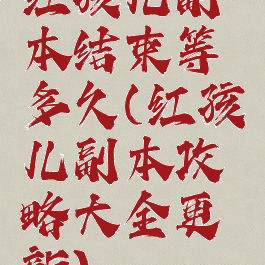 红孩儿副
本结束等
多久(红孩
儿副本攻
略大全更
新)